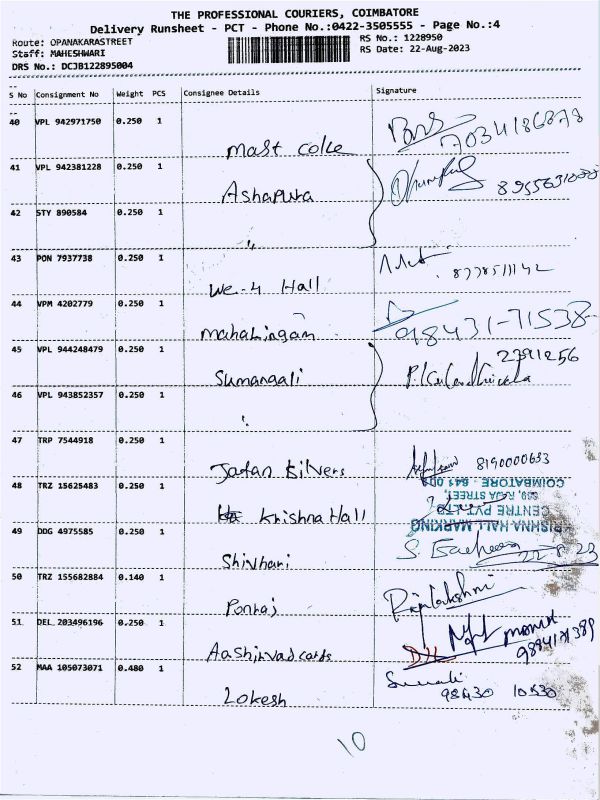 THE PROFESSIONAL COURIERS, COIMBATORE
Delivery Runsheet - PCT - Phone No.:0422-3505555 - Page No.:4
Route: OPANAKARASTREET
RS No.: 1228950
Staff: MAHESHWARI
RS Date: 22-Aug-2023
DRS No.: DCJB122895004
S No Consignment No Weight PCS Consignee Details Signature
40 VPL 942971750 0.250 1
7034186878
41 VPL 942381228 0.250 1
Ashapura
42 STY 890584 0.250 1
"
43 PON 7937738 0.250 1
We-4 Hall
44 VPM 4202779 0.250 1
Mahalingam 98431-71538
45 VPL 944248479 0.250 1
Sumangali 2391256
46 VPL 943852357 0.250 1
"
47 TRP 7544918 0.250 1
Silvers 8190000633
48 TRZ 15625483 0.250 1
Krishna Hall
KRISHNA HALL MARKING
CENTRE PVT LTD
RAJA STREET,
COIMBATORE - 641 001
49 DDG 4975585 0.250 1
Shivhari 22-8-23
50 TRZ 155682884 0.140 1
Ponraj Rajalakshmi
51 DEL 203496196 0.250 1
Aashirvad cards
52 MAA 105073071 0.480 1
Lokesh 98430 10530
10